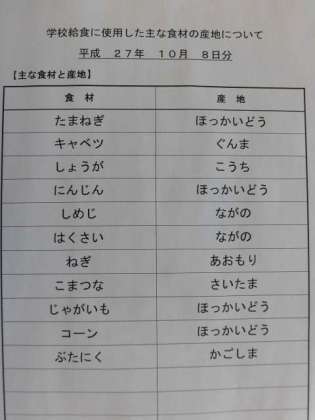 学校給食に使用した主な食材の産地について
平成 27年 10月 8日分
【主な食材と産地】
食 材 産 地
たまねぎ ほっかいどう
キャベツ ぐんま
しょうが こうち
にんじん ほっかいどう
しめじ ながの
はくさい ながの
ねぎ あおもり
こまつな さいたま
じゃがいも ほっかいどう
コーン ほっかいどう
ぶたにく かごしま